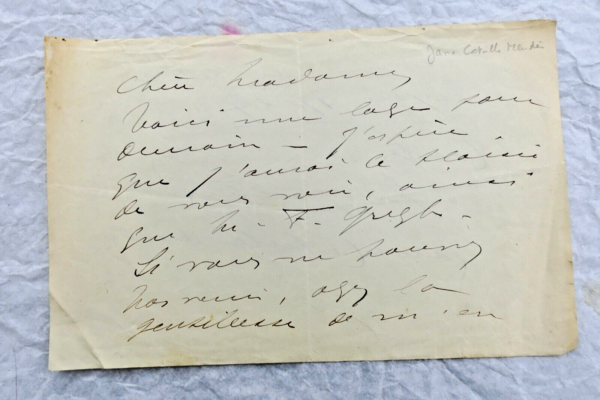 Jane Catulle Mendès
Chère Madame,
Voici une loge pour
demain – J'espère
que j'aurai le plaisir
de vous voir, ainsi
que M. F. Gregh –
Si vous ne pouviez
pas venir, ayez la
gentillesse de m'en